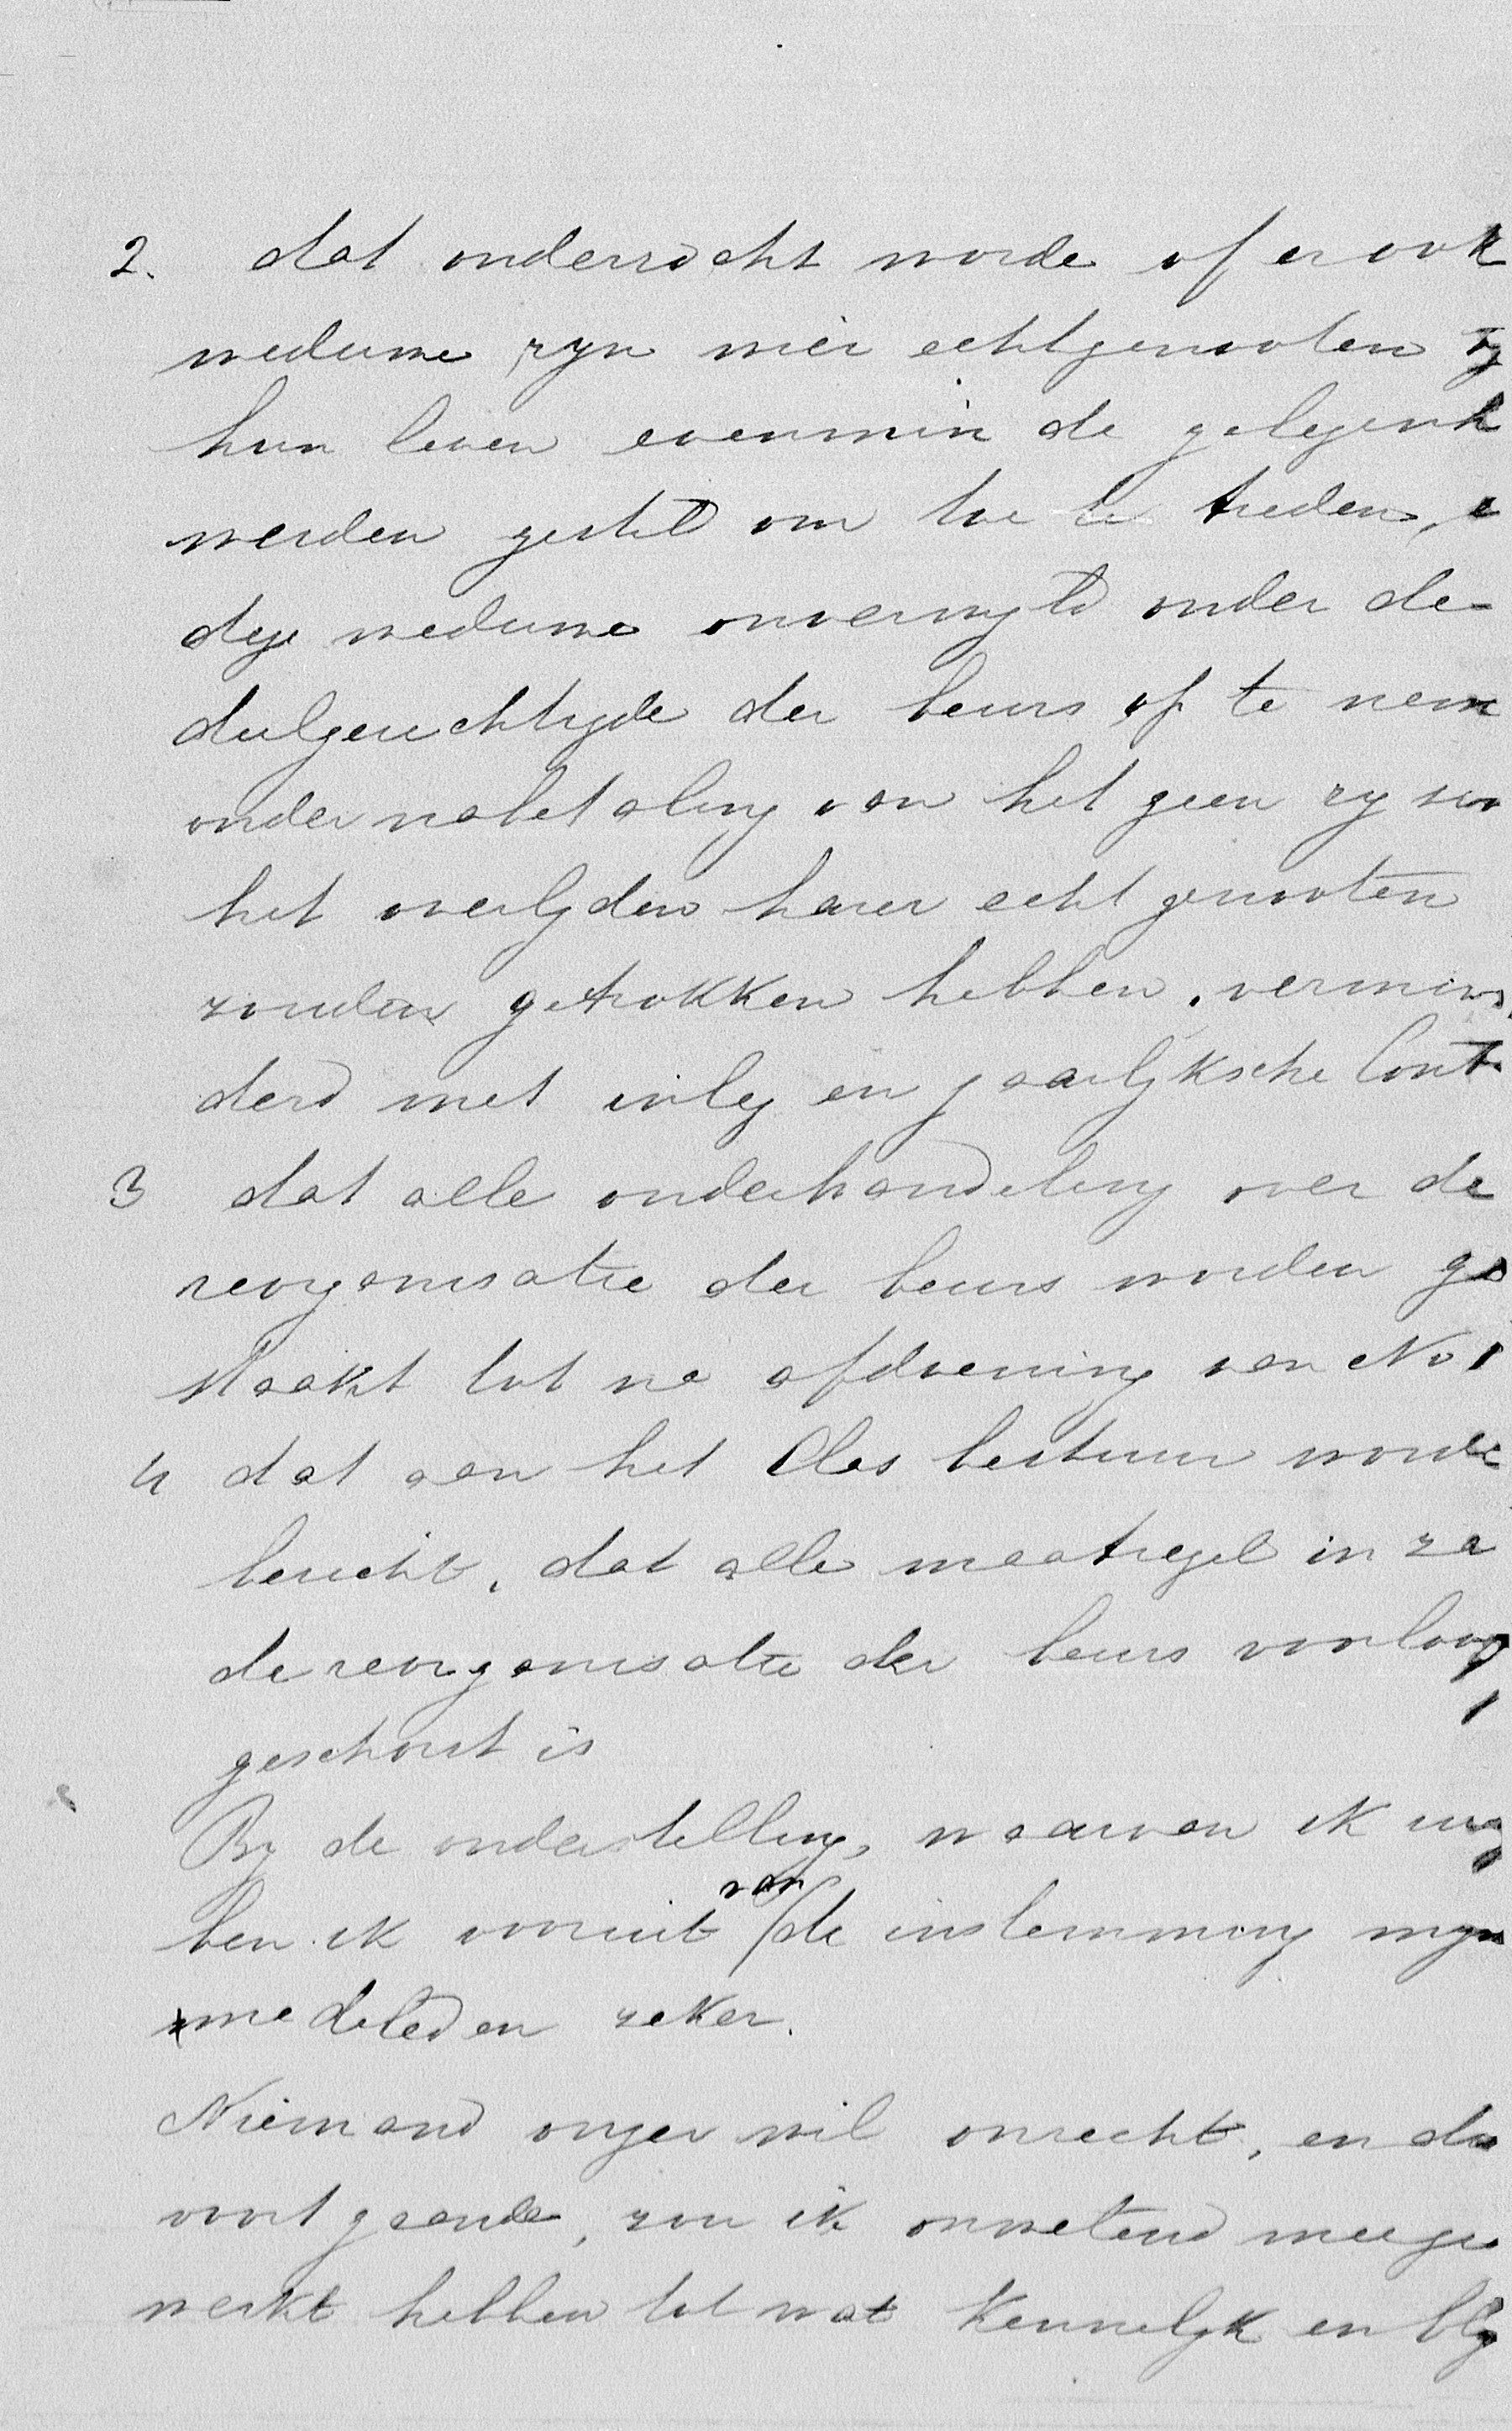 2. dat onderzocht worde of er ook
weduwe zyn wier echtgenooten by
hun leven evenmin de gelegenh
werden gesteld om toe te treden, e
deze weduwe onverwyld onder de
deelgerechtigde der beurs op te nem
onder nabetaling van het geen zy sin
het overlyden harer echtgenooten
zouden getrokken hebben, vermin
derd met inleg en jaarlyksche Cont.
3 dat alle onderhandeling over de
reorganisatie der beurs worden ge
staakt tot na afdoening van No 1
4 dat aan het Clas bestuur worde
bericht, dat alle maatregel in za
de reorganisatie der beurs voorloop
geschorst is
By de onderstelling, waarvan ik uitg
ben ik vooruit van de instemming myn
medeleden zeker.
Niemand onzer wil onrecht, en du
voortgaande, zou ik onwetend meege
werkt hebben tot wat kennelyk en bly